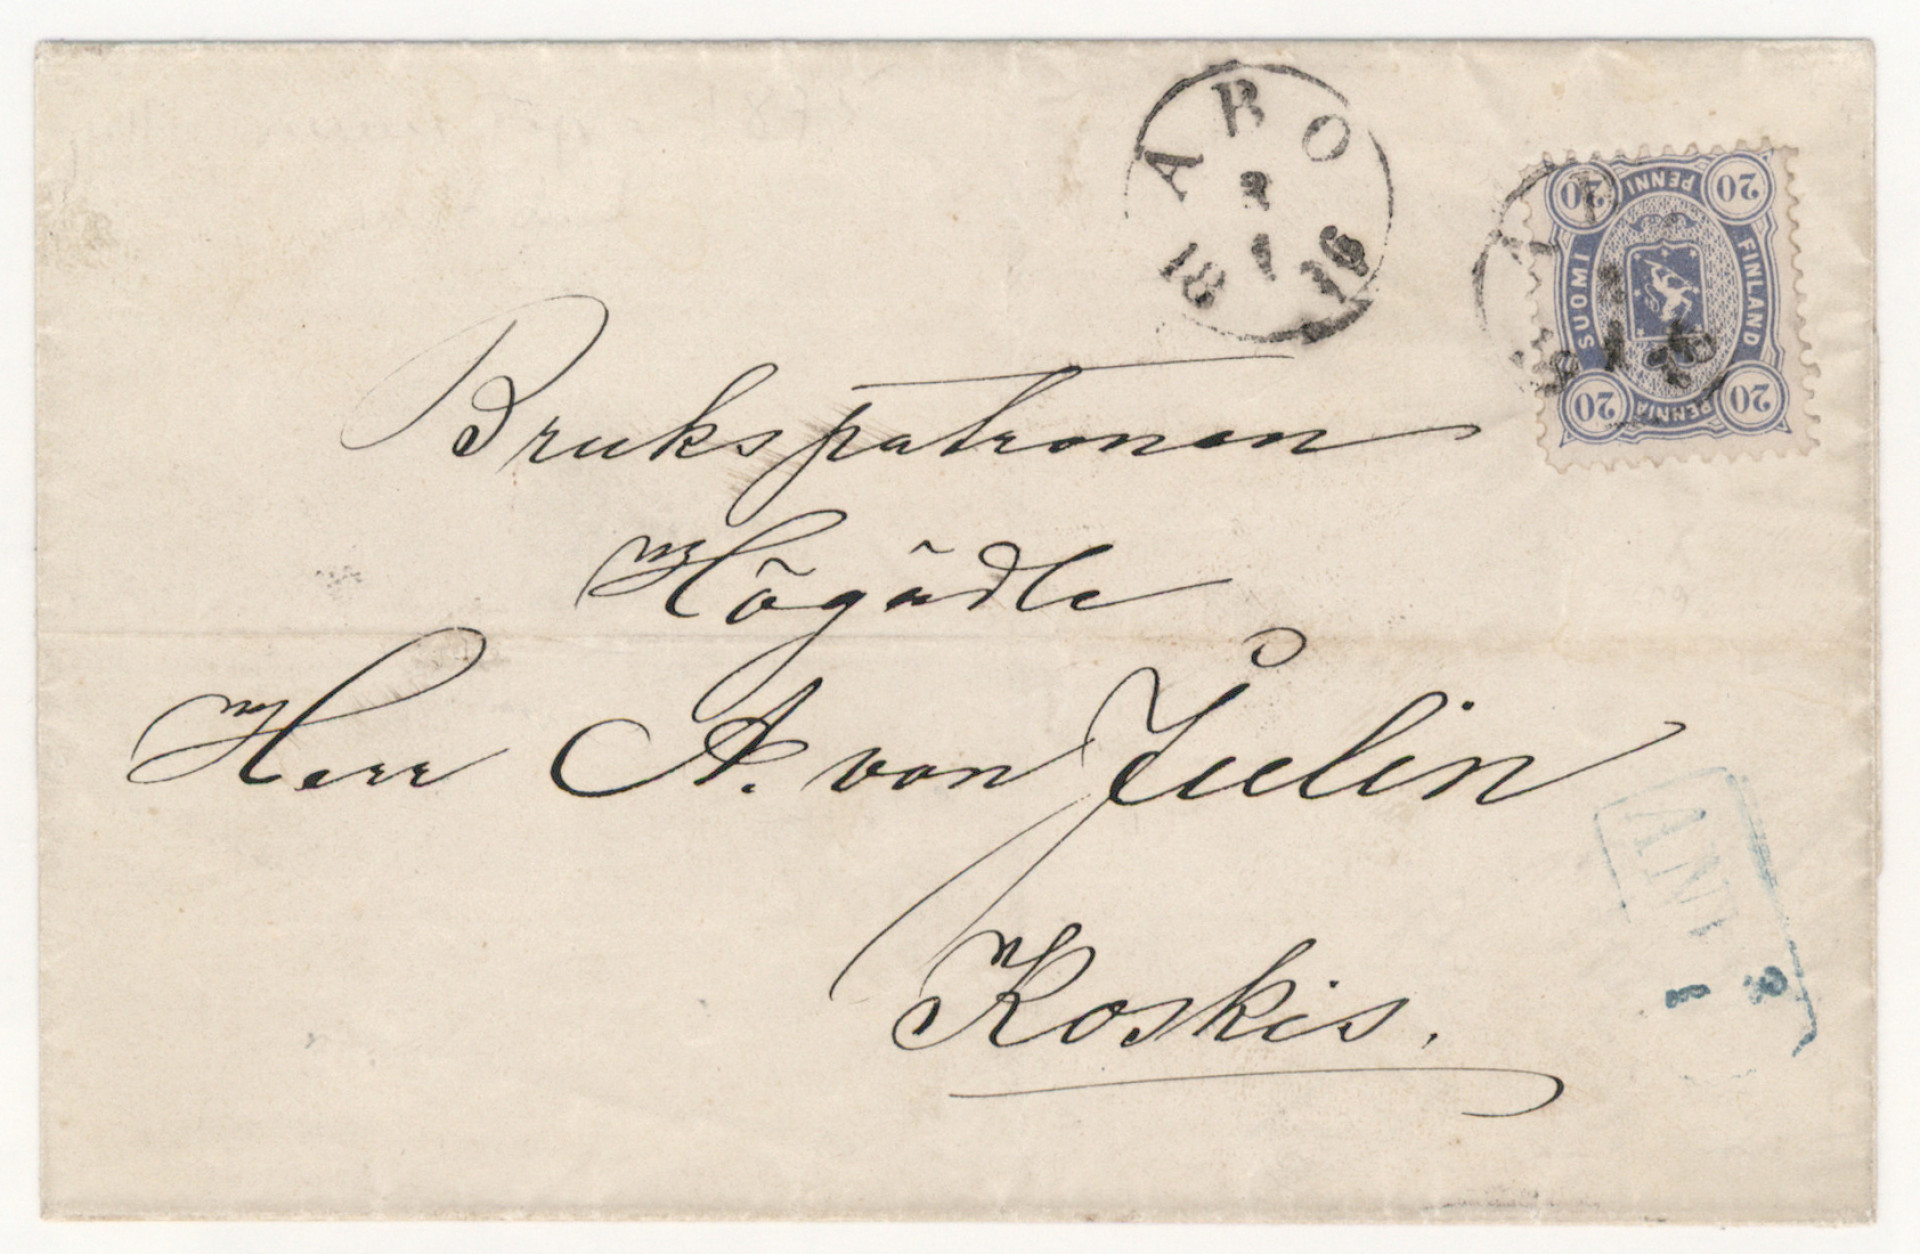 ABO
1
18 76
20 PENNI 20
SUOMI FINLAND
20 PENNIÄ 20
Brukspatronen
Högädle
Herr A. von Julin
Koskis.
ANK
3
1